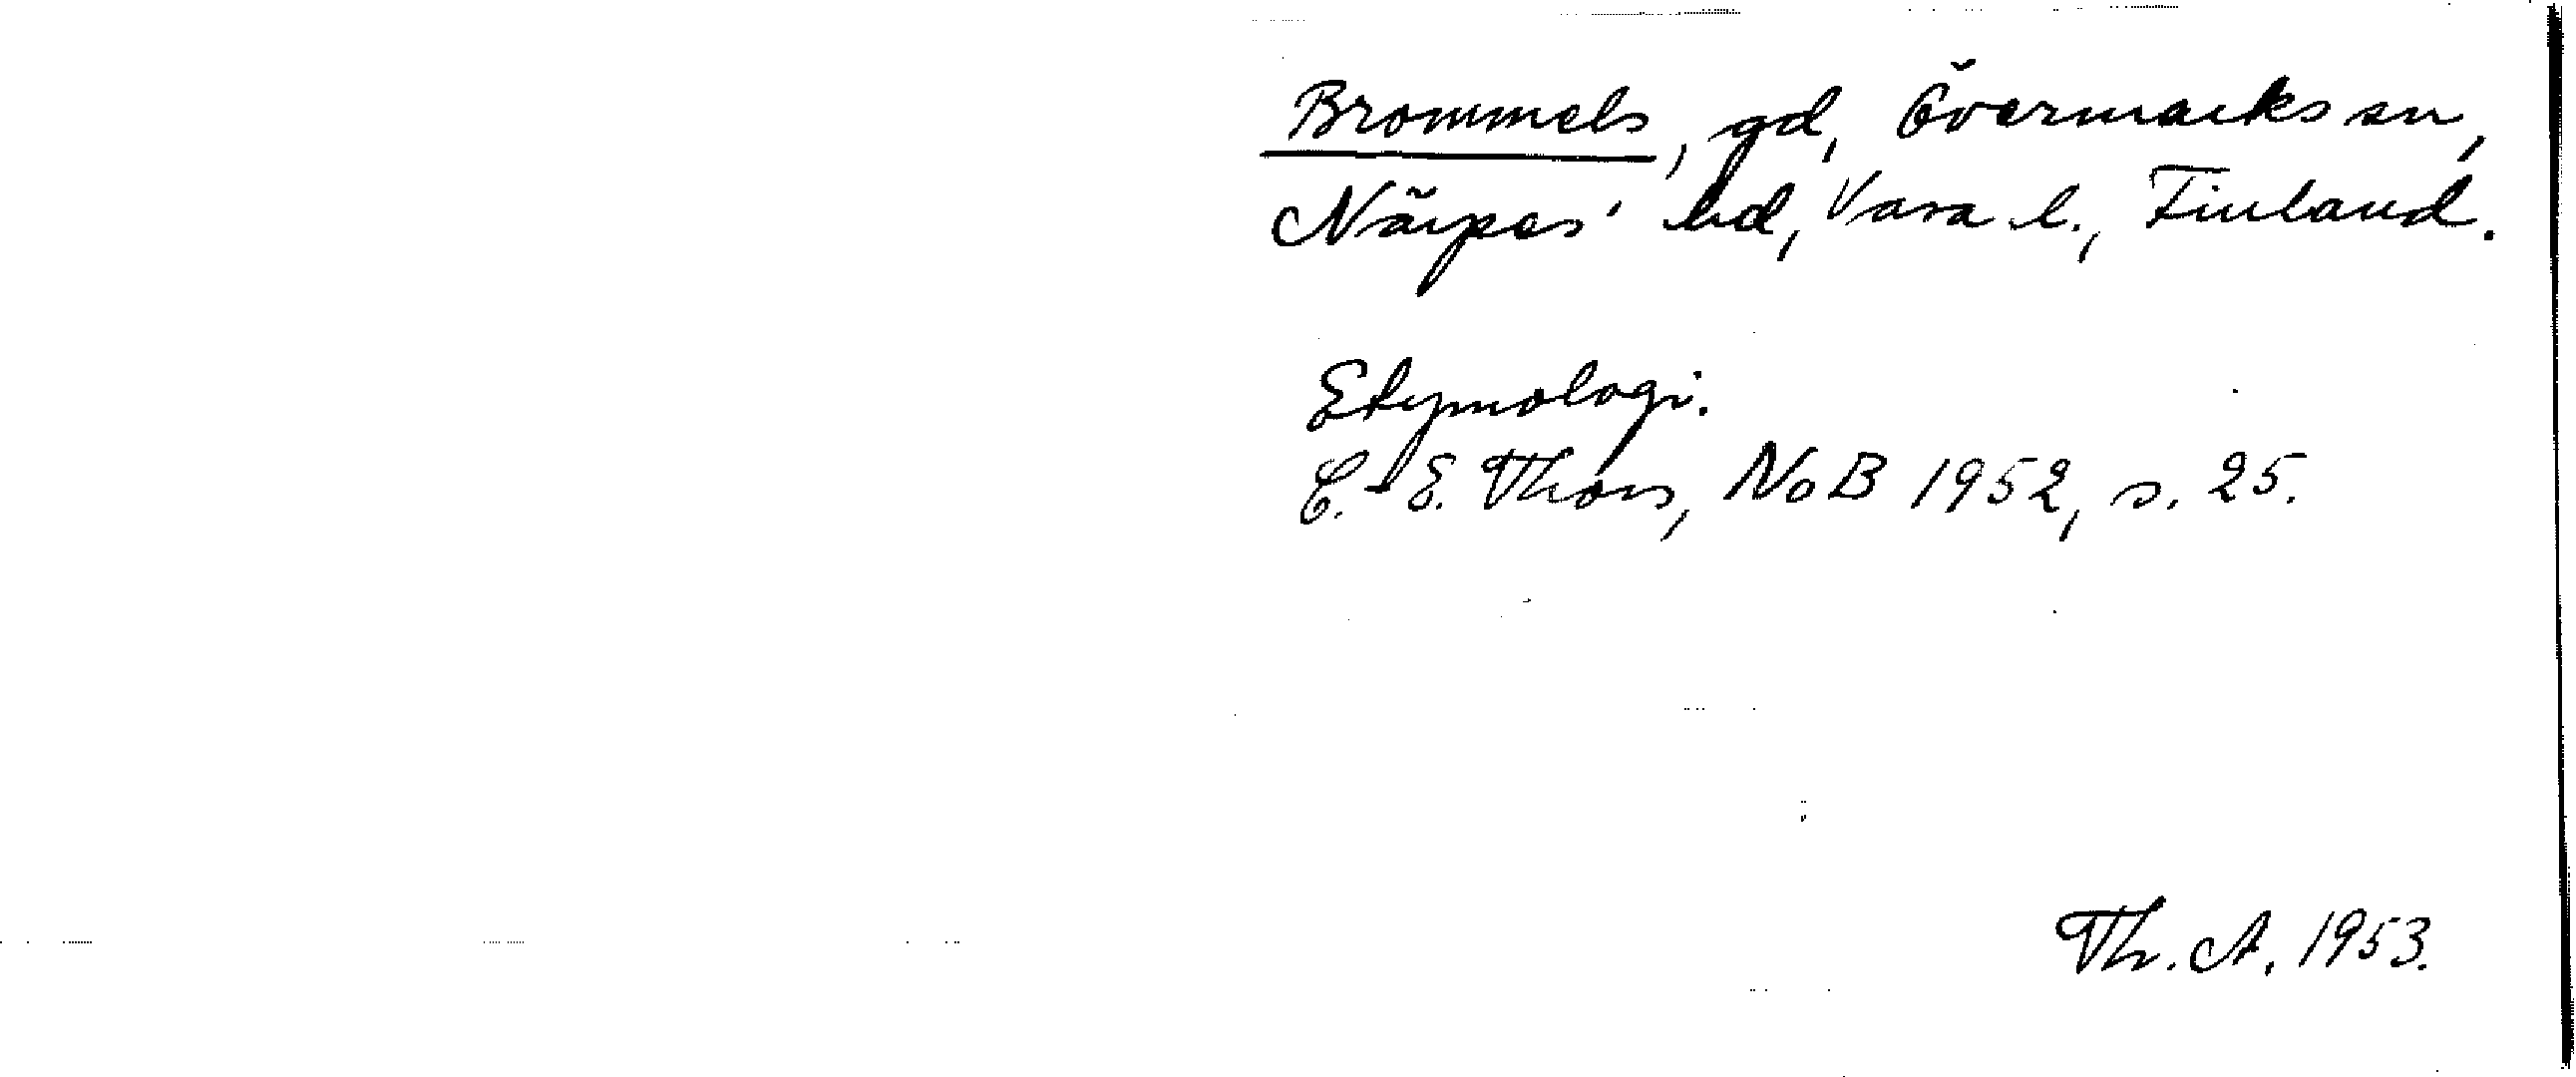 Brommels, gd, Övermarks sn,
Närpes' hd, Vasa l., Finland.
Etymologi.
C.-E. Thors, NoB 1952, s. 25.
Th. A. 1953.